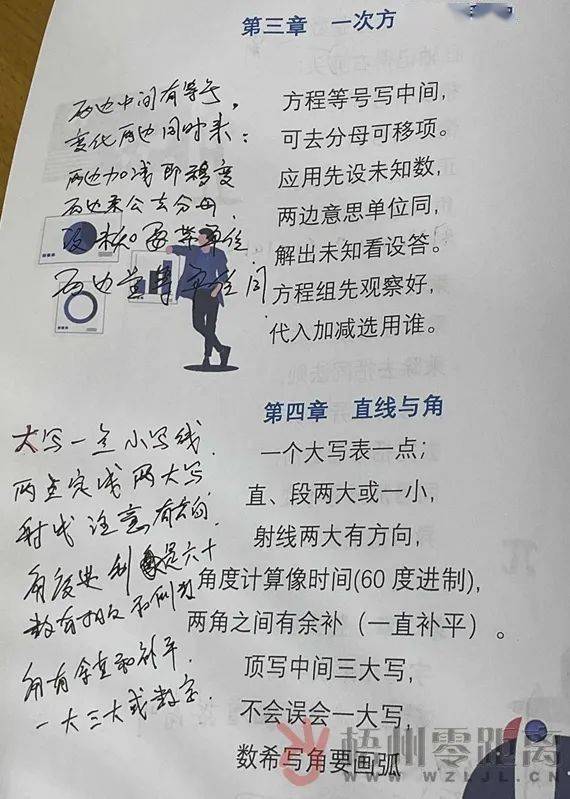 第三章 一次方
方程等号写中间,
可去分母可移项。
应用先设未知数,
两边意思单位同,
解出未知看设答。
方程组先观察好,
代入加减选用谁。
两边中间有等号,
变化两边同时来:
两边加减即移变
两边乘公去分母
设未知要带单位
第四章 直线与角
一个大写表一点;
直、段两大或一小,
射线两大有方向,
角度计算像时间(60 度进制),
两角之间有余补(一直补平)。
顶写中间三大写,
不会误会一大写,
数希写角要画弧
大写一点小写线.
两点定线两大写
射线注意有方向.
角度进制是六十
角有余直和补平.
一大三大或数字.
梧州零距离
WWW.WZLJL.CN